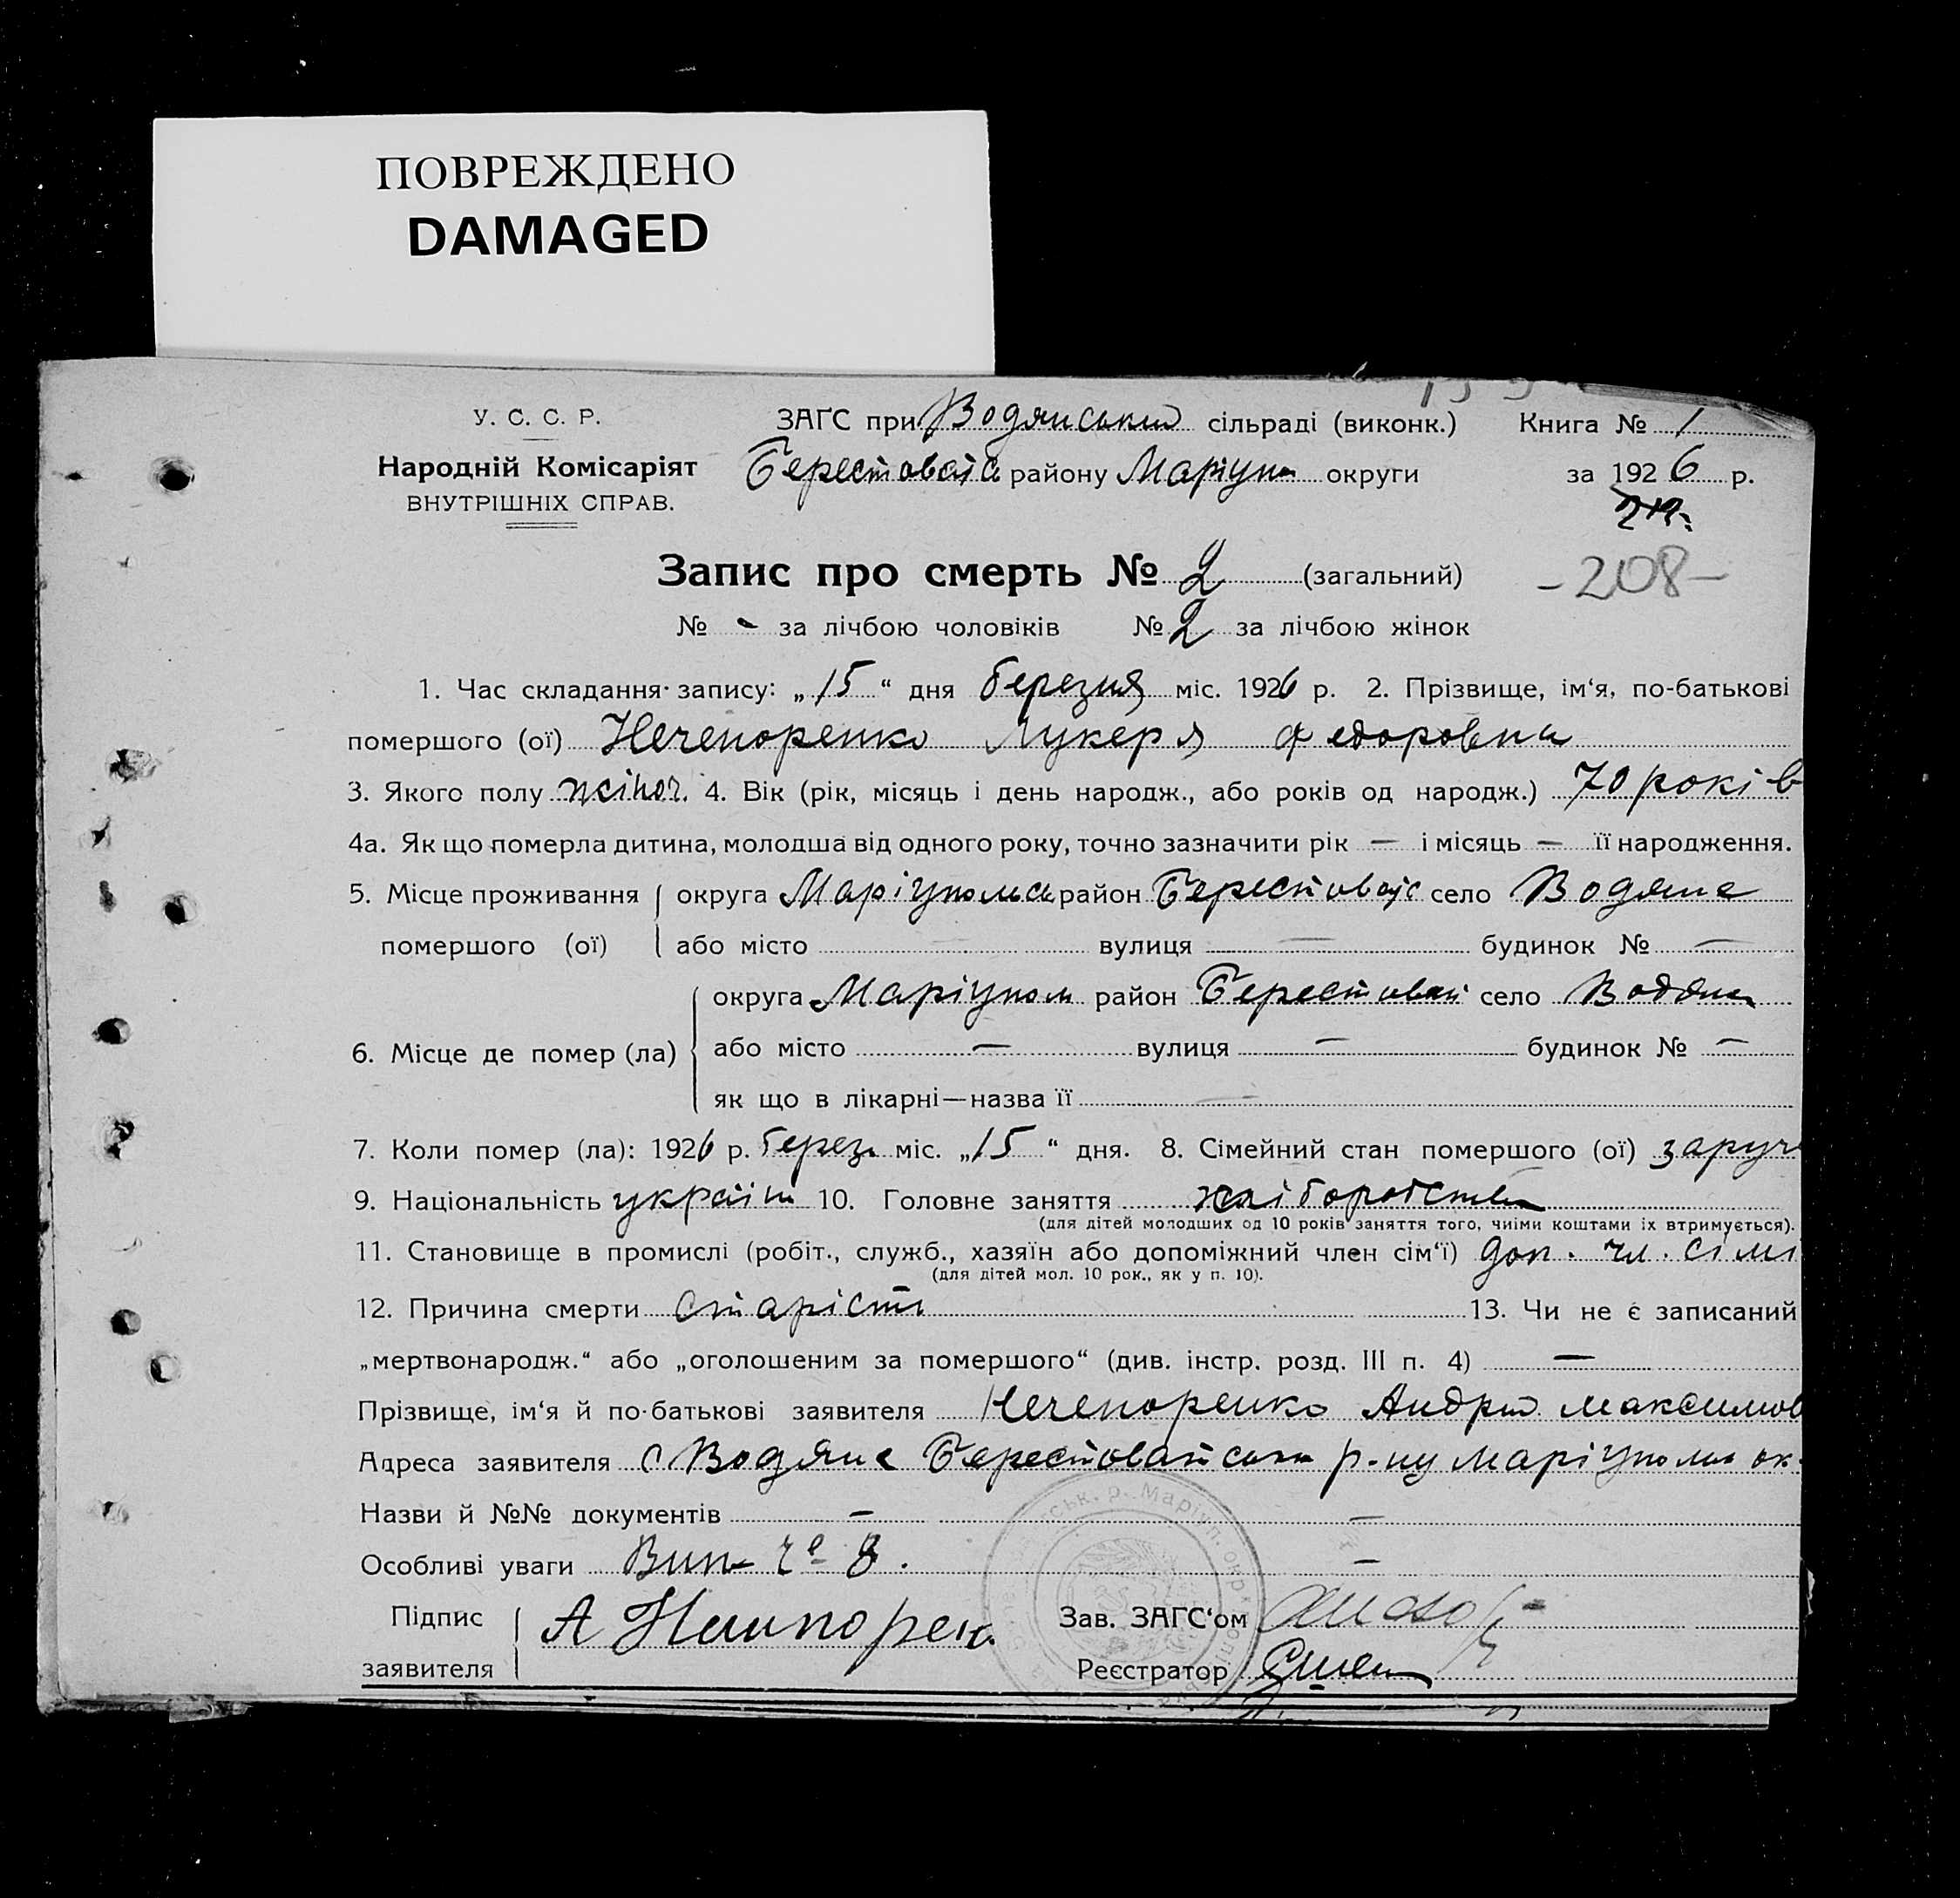 ПОВРЕЖДЕНО
DAMAGED
У. С. С. Р.
Народній Комісаріят
ВНУТРІШНІХ СПРАВ.
ЗАГС при Водянський сільраді (виконк.) Книга № 1
району Маріуп округи за 1926 р.
-208-
Запис про смерть № 2 (загальний)
№ - за лічбою чоловіків № 2 за лічбою жінок
1. Час складання запису: „15“ дня березня міс. 1926 р. 2. Прізвище, ім‘я, по-батькові
помершого (ої) Нечепоренко Лукеря Федоровна
3. Якого полу жіноч. 4. Вік (рік, місяць і день народж., або років од народж.) 70 років
4а. Як що померла дитина, молодша від одного року, точно зазначити рік — і місяць — її народження.
5. Місце проживання округа район село Водяне
помершого (ої) або місто — вулиця — будинок № —
округа Маріупол район село
6. Місце де помер (ла) або місто — вулиця — будинок № —
як що в лікарні—назва її —
7. Коли помер (ла): 1926 р. берез. міс. „15“ дня. 8. Сімейний стан помершого (ої) заруч
9. Національність україн 10. Головне заняття
(для дітей молодших од 10 років заняття того, чиїми коштами їх втримується).
11. Становище в промислі (робіт., служб., хазяїн або допоміжний член сім‘ї) доп. чл. сімї
(для дітей мол. 10 рок., як у п. 10).
12. Причина смерти старість 13. Чи не є записаний
„мертвонародж.“ або „оголошеним за помершого“ (див. інстр. розд. III п. 4) —
Прізвище, ім‘я й по-батькові заявителя Нечепоренко Андрій Максимов
Адреса заявителя с Водяне р-ну ок.
Назви й №№ документів — —
Особливі уваги —
Підпис
заявителя
Зав. ЗАГС‘ом
Реєстратор